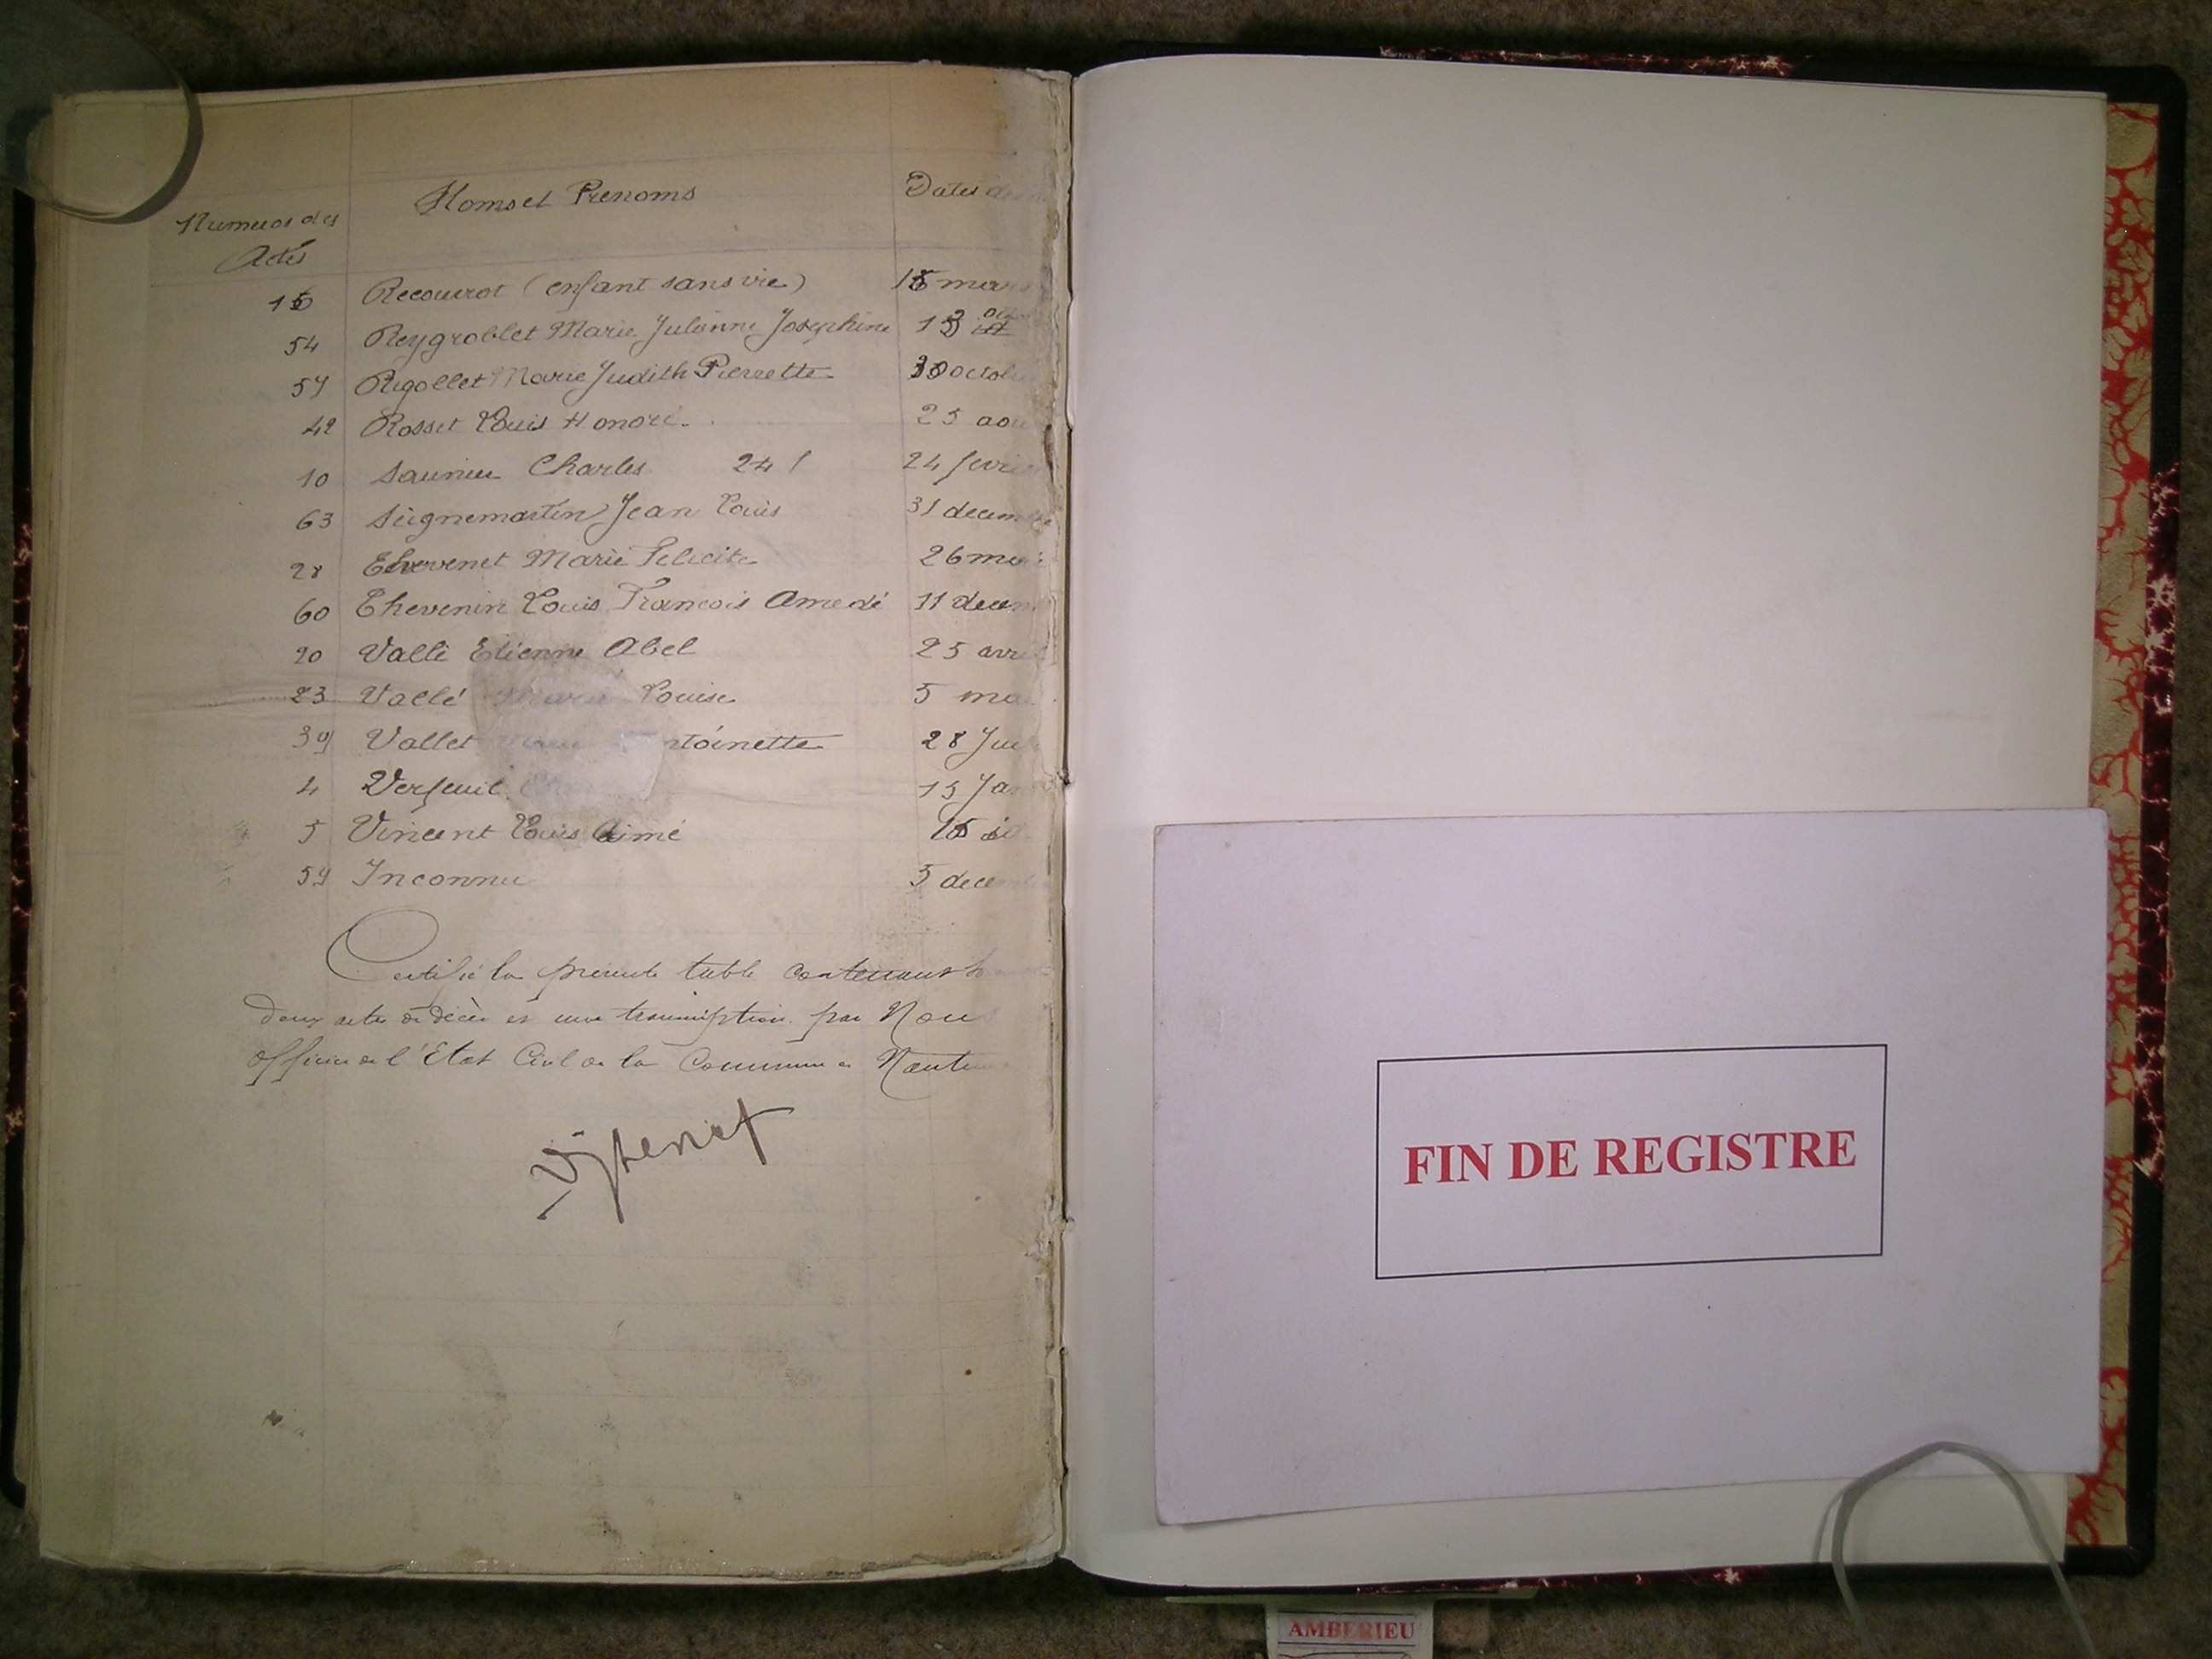 Numeros des Actes Noms et Prenoms Dates des
16 Recourot (enfant sans vie) 18 mars
54 Reygroblet Marie Julienne Josephine 13
57 Rigollet Marie Judith Pierrette 30 octob
42 Rosset Louis Honoré. 25 aou
10 Saunier Charles 24 fevrie
63 Seignemartin Jean Louis 31 decembre
28 Thevenet Marie Felicite 26 mai
60 Thevenin Louis Francois Amedé 11 decem
20 Vallé Etienne Abel 25 avril
23 Vallé Marie Louise 5 ma
39 Vallet ntoinette 28 Juil
4 Verfeuil 15 Jan
5 Vincent Louis Aimé 16 id
59 Inconnu 5 decembre
Certifié la présente table contenant
deux actes de décès et une transcription par Nous
Officier de l'Etat Civil de la Commune de Nantu
FIN DE REGISTRE
AMBERIEU